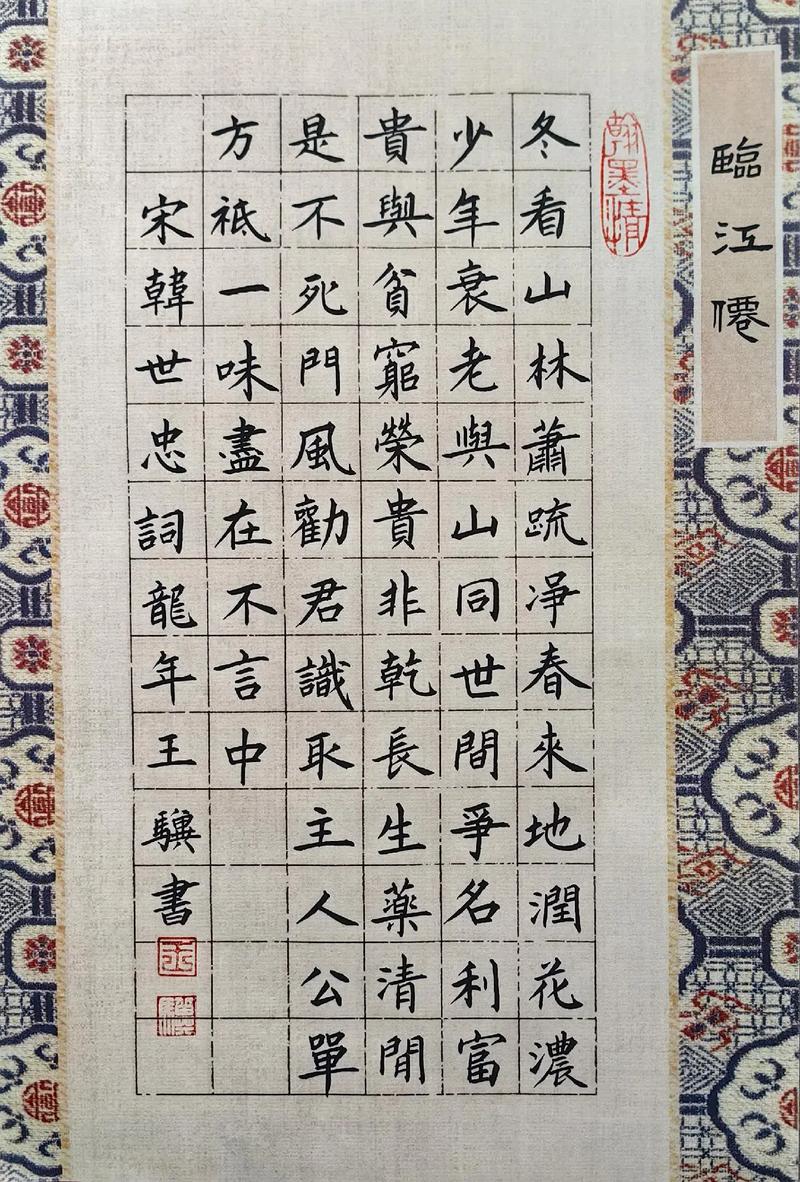 臨江僊
翰墨情
冬看山林蕭疏淨春來地潤花濃
少年衰老與山同世間爭名利富
貴與貧窮榮貴非乾長生藥清閒
是不死門風勸君識取主人公單
方袛一味盡在不言中
宋韓世忠詞龍年王驥書